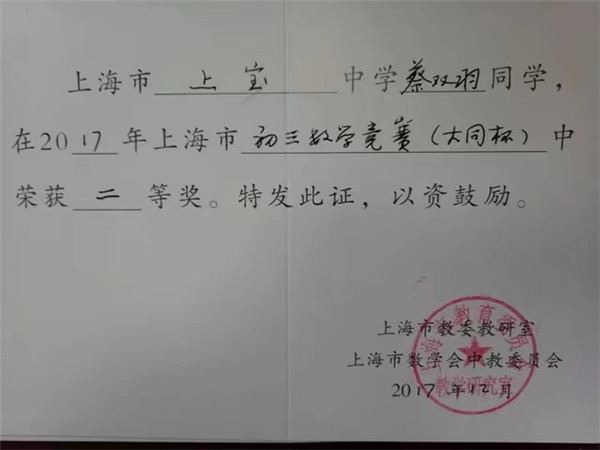 上海市 上宝 中学蔡双羽同学，
在2017年上海市 初三数学竞赛（大同杯）中
荣获 二 等奖。特发此证，以资鼓励。
上海市教委教研室
上海市数学会中教委员会
2017年12月
上海市教育委员会
教学研究室